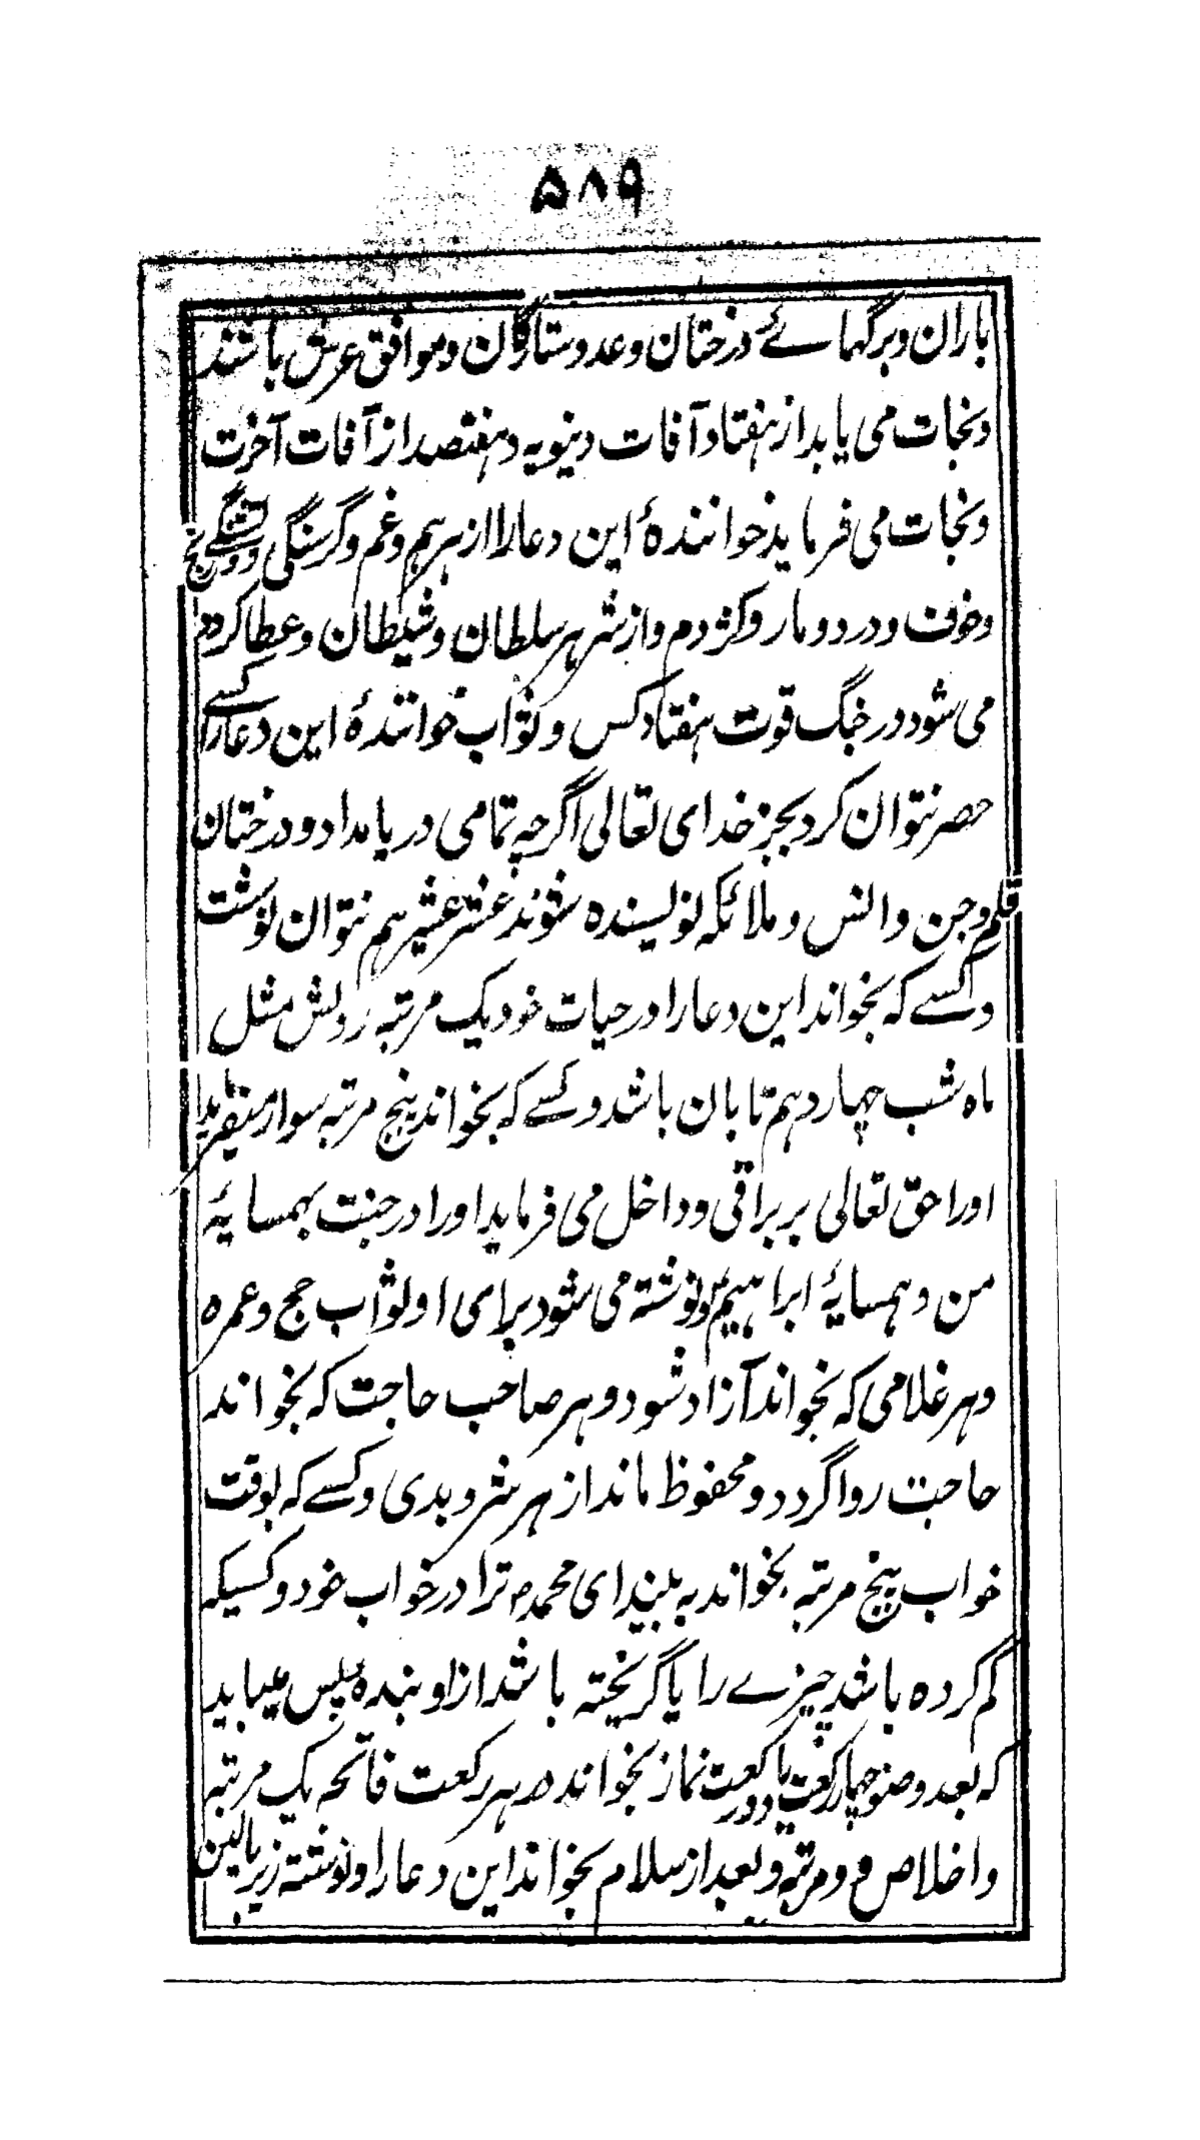 ۵۸۹
باران و برگہائے درختان و عدد ستارگان و موافق عرش باشند
و نجات می یابد از ہفتاد آفات دنیویہ و ہفتصد از آفات آخرت
و نجات می فرماید خوانندۂ این دعا را از ہر ہم و غم و گرسنگی و تشنگے و رنج
و خوف و درد و مار و کژدم و از شر ہر سلطان و شیطان و عطا کردہ
می شود در جنگ قوت ہفتاد کس و ثواب خوانندۂ این دعا را کسے
حصر نتوان کرد بجز خدای تعالی اگرچہ تمامی دریا مداد و درختان
قلم و جن و انس و ملائکہ نویسندہ شوند عشر عشیر ہم نتوان نوشت
و کسے کہ بخواند این دعا را در حیات خود یک مرتبہ رویش مثل
ماہ شب چہاردہم تابان باشد و کسے کہ بخواند پنج مرتبہ سوار میفرماید
اورا حق تعالی بر براقی و داخل می فرماید اورا در جنت بہمسایۂ
من و ہمسایۂ ابراہیم و نوشتہ می شود برای او ثواب حج و عمرہ
و ہر غلامی کہ بخواند آزاد شود و ہر صاحب حاجت کہ بخواند
حاجت روا گردد و محفوظ ماند از ہر شر و بدی و کسے کہ بوقت
خواب پنج مرتبہ بخواند بہ بیند ای محمدؐ ترا در خواب خود و کسیکہ
گم کردہ باشد چیزے را یا گریختہ باشد از او بندہ پس میباید
کہ بعد وضو چہار رکعت یا دو رکعت نماز بخواند در ہر رکعت فاتحہ یک مرتبہ
و اخلاص دو مرتبہ و بعد از سلام بخواند این دعا را و نوشتہ زیر بالین